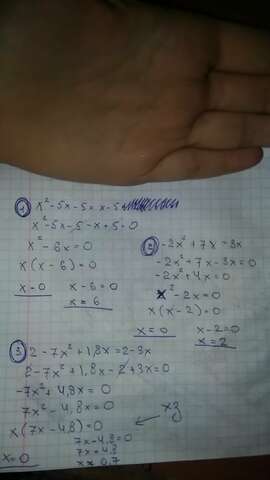 1) x² - 5x - 5 = x - 5
x² - 5x - 5 - x + 5 = 0
x² - 6x = 0
x(x - 6) = 0
x = 0 x - 6 = 0
x = 6
2) -2x² + 7x = 3x
-2x² + 7x - 3x = 0
-2x² + 4x = 0
x² - 2x = 0
x(x - 2) = 0
x = 0 x - 2 = 0
x = 2
3) 2 - 7x² + 1,8x = 2 - 3x
2 - 7x² + 1,8x - 2 + 3x = 0
-7x² + 4,8x = 0
7x² - 4,8x = 0
x(7x - 4,8) = 0
7x - 4,8 = 0
7x = 4,8
x = 0 x ≈ 0,7